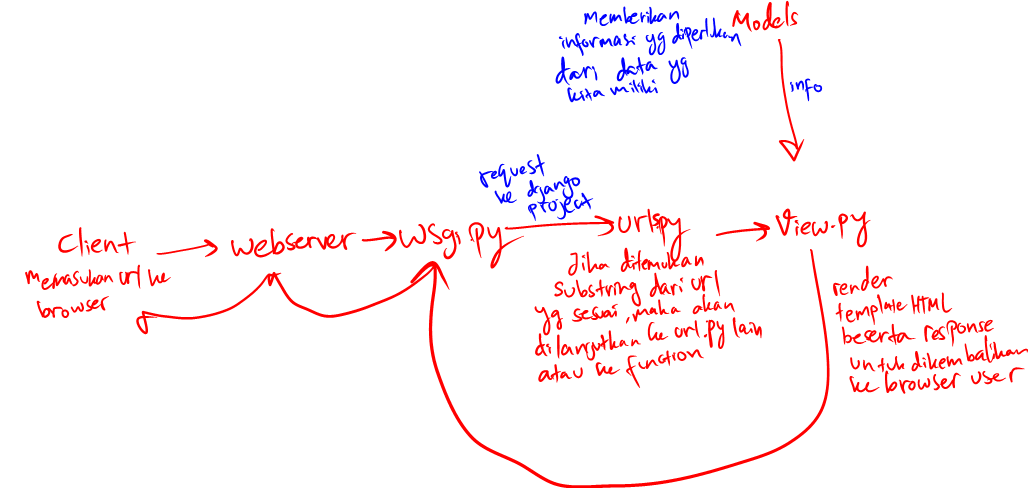 Memberikan
informasi yg diperlukan
dari data yg
kita miliki
Models
info
request
ke django
project
Client
webserver
wsgi.py
urls.py
View.py
Memasukan url ke
browser
Jika ditemukan
substring dari url
yg sesuai, maka akan
dilanjutkan ke url.py lain
atau ke function
render
template HTML
beserta response
untuk dikembalikan
ke browser user